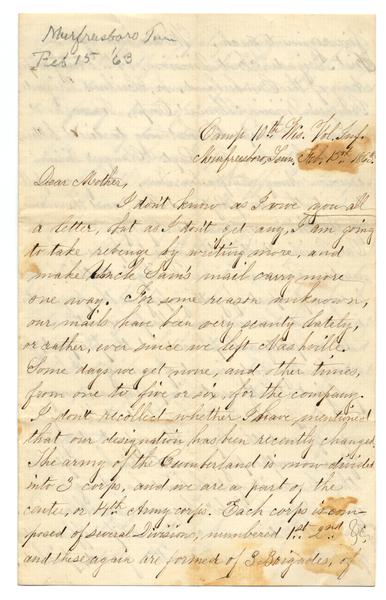 Murfreesboro Tenn
Feb 15 '63
Camp 10th Wis. Vol. Inf.
Murfreesboro, Tenn, Feb. 15th 186
Dear Mother,
I don't know as I owe you all
a letter, but as I don't get any, I am going
to take revenge by writing more, and
make Uncle Sam's mail carry more
one way. For some reason unknown,
our mails have been very scanty lately,
or rather, ever since we left Nashville.
Some days we get more, and other times,
from one to five or six, for the company.
I don't recollect whether I have mentioned
that our designation has been recently changed.
The army of the Cumberland is now divided
into 3 corps, and we are a part of the
center, or 14th Army corps. Each corps is com-
posed of several Divisions, numbered 1st 2nd &c,
and these again are formed of 3 Brigades, of